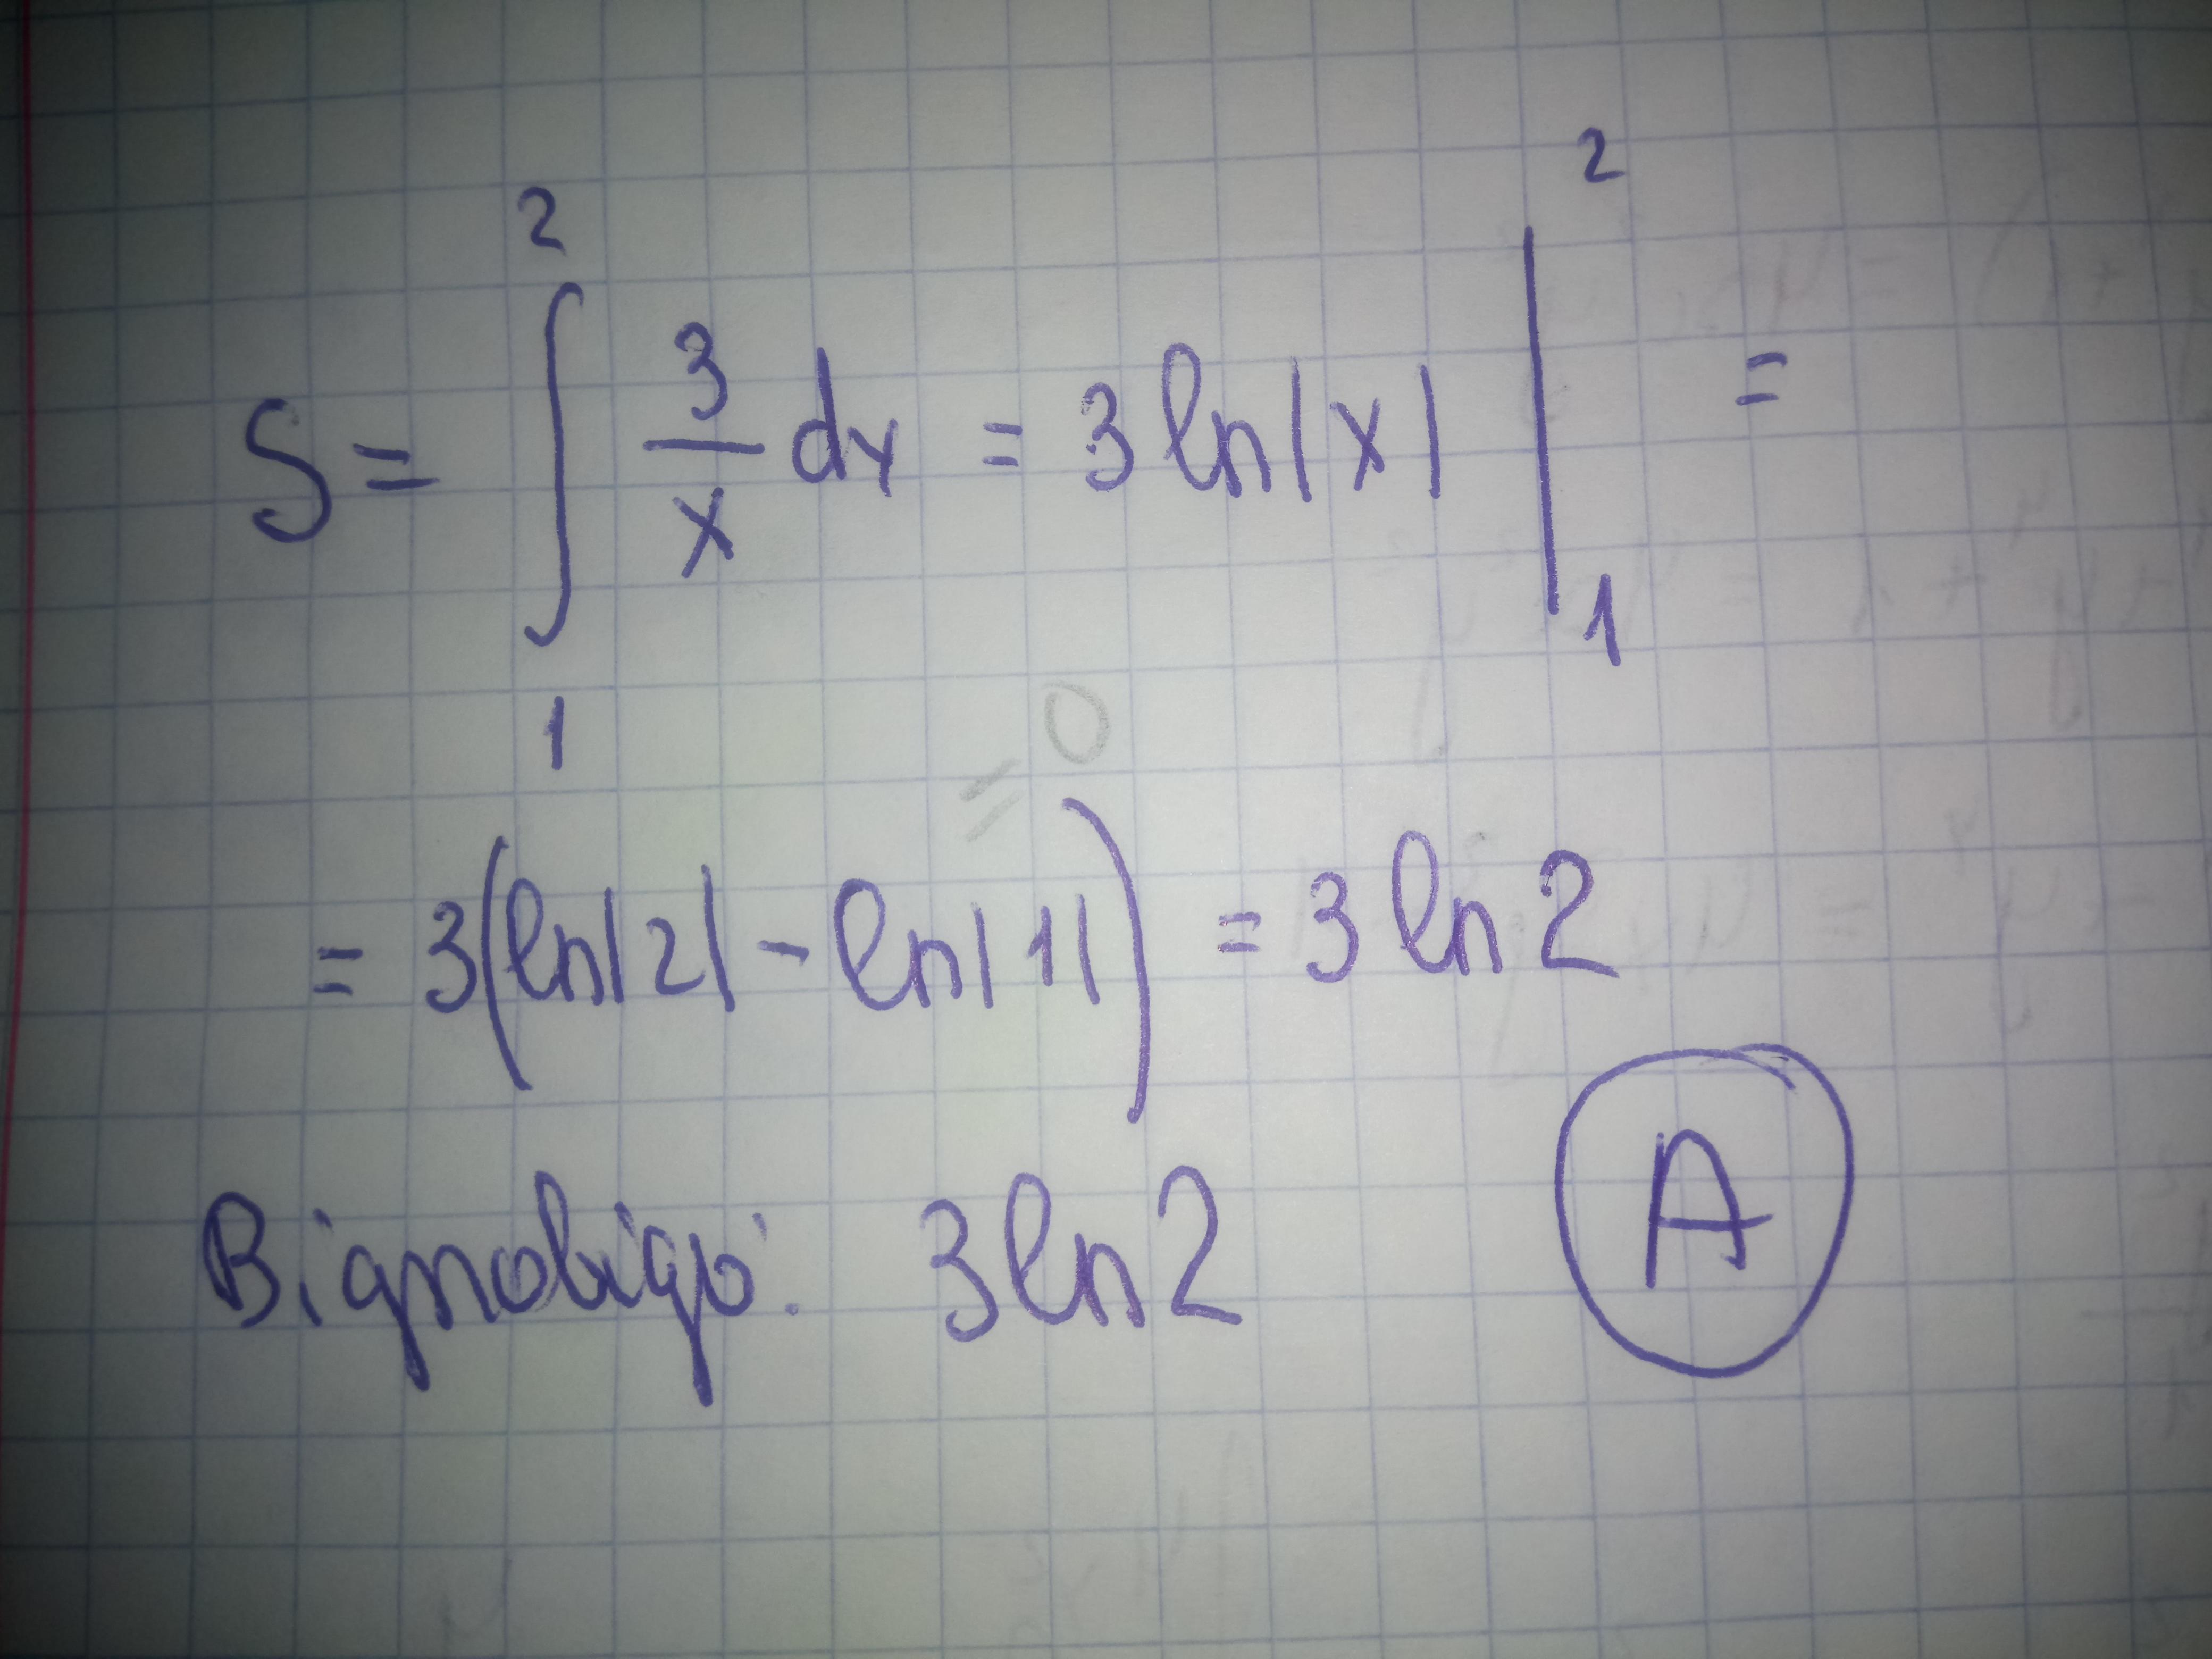 S = ∫₁² 3/x dx = 3 ln|x| |₁² =
= 0
= 3(ln|2| - ln|1|) = 3 ln 2
Відповідь: 3 ln 2
А